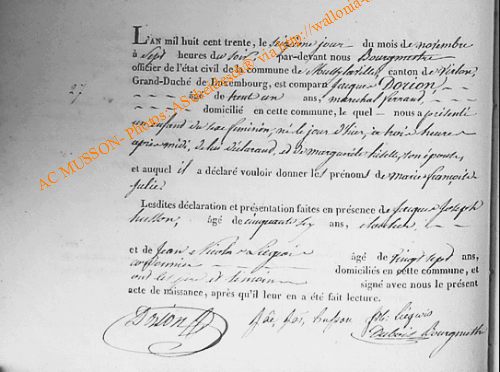 L'AN mil huit cent trente, le sixième jour du mois de novembre
à sept heures du soir, par-devant nous Bourgmestre
officier de l'état civil de la commune de canton de Virton,
Grand-Duché de Luxembourg, est comparu Jacques Dorion
27.
âgé de trente un ans, marechal ferrant
domicilié en cette commune, le quel nous a présenté
un enfant du sexe féminin, né le jour d'hier, a trois heures
après midi, de lui déclarant, et de margueritte son épouse
et auquel il a déclaré vouloir donner les prénoms de marie françoise
julie
Lesdites déclaration et présentation faites en présence de Jacques Joseph
husson, âgé de cinquante six ans,
et de Jean Nicolas âgé de vingt sept ans,
cordonnier domiciliés en cette commune, et
ont les père et témoins signé avec nous le présent
acte de naissance, après qu'il leur en a été fait lecture.
Dorion husson
Bourgmestre
AC MUSSON- Photos - http://wallonia